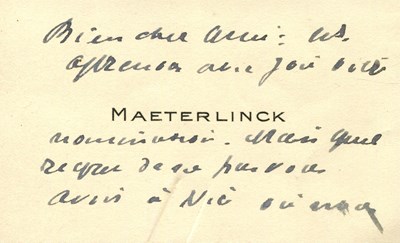 Bien cher ami: 
apprenons avec joie votre
MAETERLINCK
nomination. Mais quel
regret de ne pas vous
avoir à Nice où nous